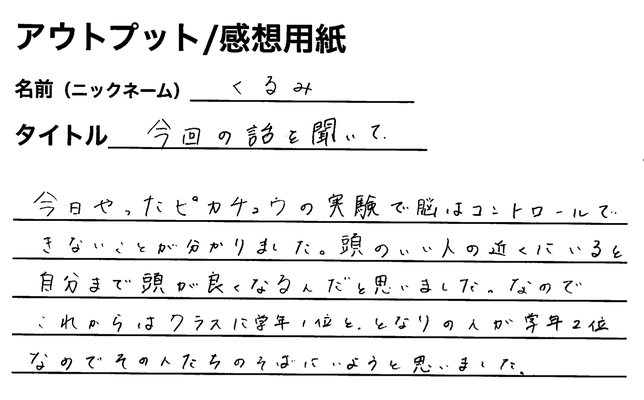 アウトプット/感想用紙
名前（ニックネーム） くるみ
タイトル 今回の話を聞いて
今日やったピカチュウの実験で脳はコントロールで
きないことが分かりました。頭のいい人の近くにいると
自分まで頭が良くなるんだと思いました。なので
これからはクラスに学年1位と、となりの人が学年2位
なのでその人たちのそばにいようと思いました。